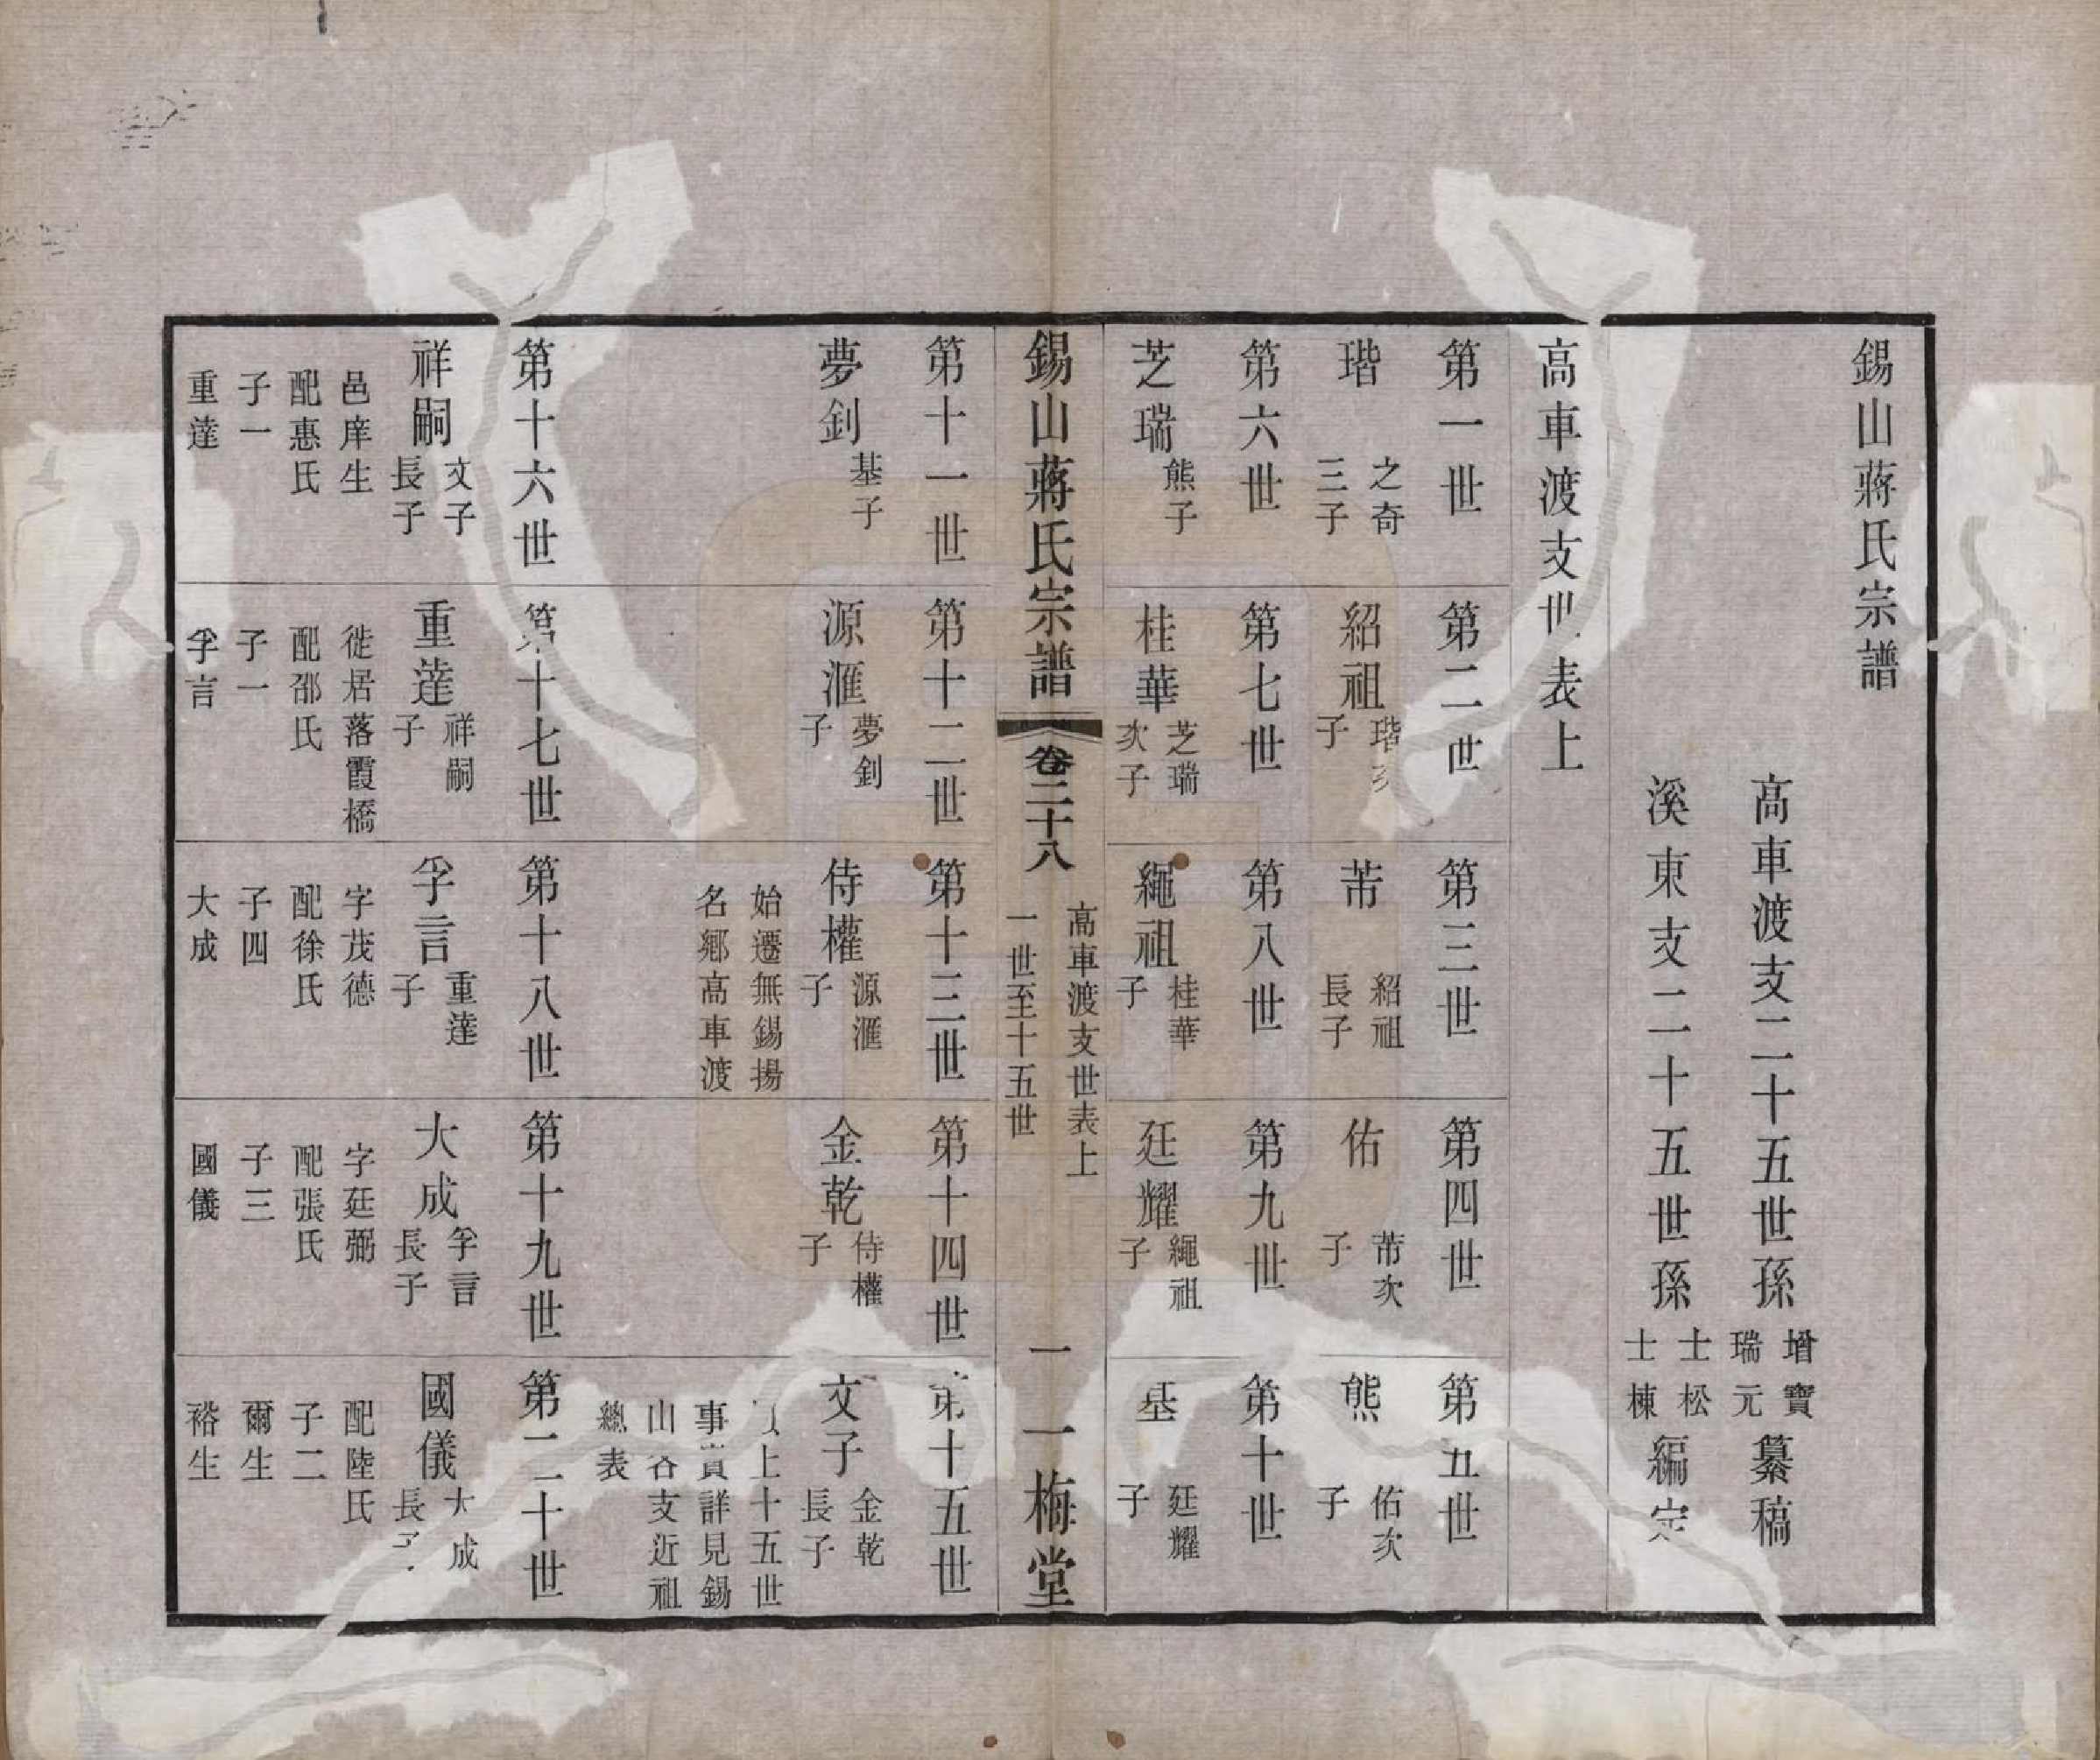 錫山蔣氏宗譜
高車渡支二十五世孫 增寶 瑞元 纂稿
溪東支二十五世孫 士松 士棟 編定
高車渡支世表上
第一世
瑎 之奇三子
第二世
紹祖 瑎次子
第三世
芾 紹祖長子
第四世
佑 芾次子
第五世
熊 佑次子
第六世
芝瑞 熊子
第七世
桂華 芝瑞次子
第八世
繩祖 桂華子
第九世
廷耀 繩祖子
第十世
基 廷耀子
錫山蔣氏宗譜 卷二十八 高車渡支世表上 一世至十五世 一 一梅堂
第十一世
夢釗 基子
第十二世
源滙 夢釗子
第十三世
侍權 源滙子
始遷無錫揚
名鄉高車渡
第十四世
金乾 侍權子
第十五世
文子 金乾長子
上十五世
事實詳見錫
山谷支近祖
總表
第十六世
祥嗣 文子長子
邑庠生
配惠氏
子一
重達
第十七世
重達 祥嗣子
徙居落霞橋
配邵氏
子一
孚言
第十八世
孚言 重達子
字茂德
配徐氏
子四
大成
第十九世
大成 孚言長子
字廷弼
配張氏
子三
國儀
第二十世
國儀 大成長子
配陸氏
子二
爾生
裕生